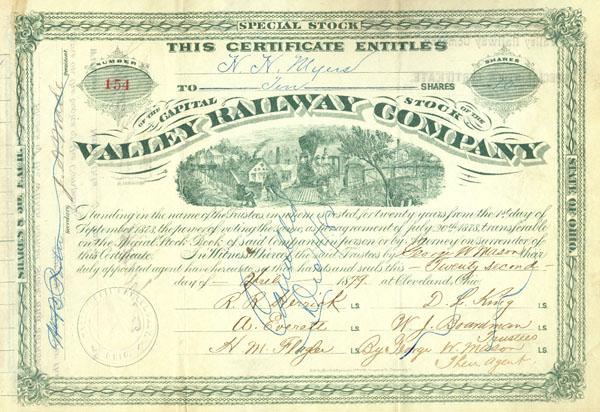 SPECIAL STOCK
THIS CERTIFICATE ENTITLES
NUMBER
154
SHARES
TO Ten SHARES
OF THE CAPITAL STOCK OF THE
VALLEY RAILWAY COMPANY
Standing in the name of the Trustees in whom is vested, for twenty years from the 1st day of
September 1878, the power of voting the same, as per agreement of July 30th 1878, transferable
on the Special Stock Book of said Company in person or by Attorney on surrender of
this Certificate. In Witness Whereof, the said Trustees by George W. their
duly appointed agent have hereunto set their hands and seals this Twenty second
day of April 1879 at Cleveland, Ohio.
R. R. Herrick L.S. D. L. King L.S.
A. Everett L.S. W. J. Boardman L.S.
Trustees
L.S. By George W. L.S.
Their agent
Cancelled
SHARES $ 50. EACH.
STATE OF OHIO
President
Secretary